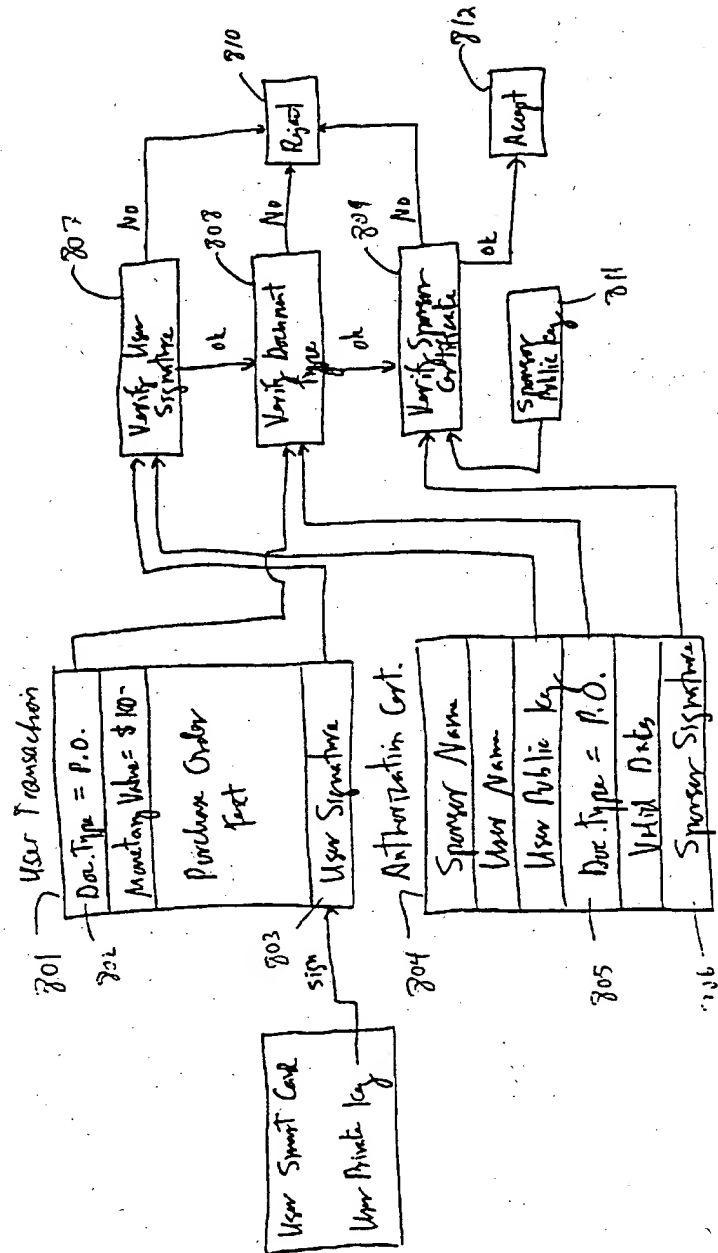 User Smart Card
User Private Key
sign
801
User Transaction
802
Doc. Type = P.O.
Monetary Value = $10-
Purchase Order
Text
803
User Signature
804
Authorization Cert.
Sponsor Name
User Name
User Public Key
805
Doc. Type = P.O.
Valid Dates
Sponsor Signature
807
Verify User
Signature
No
ok
808
Verify Document
Type
No
ok
809
Verify Sponsor
Certificate
No
ok
811
Sponsor
Public Key
810
Reject
812
Accept